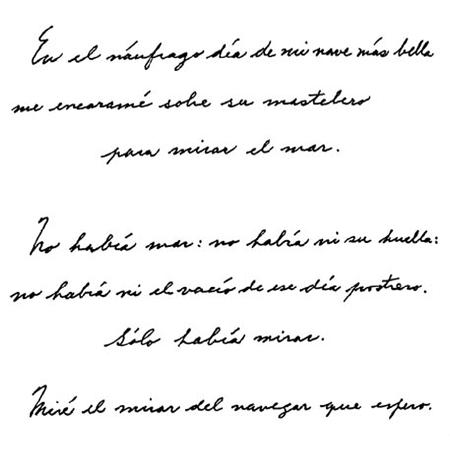 En el náufrago día de mi nave más bella
me encaramé sobre su mastelero
para mirar el mar.
No había mar: no había ni su huella:
no había ni el vacío de ese día postrero.
Sólo había mirar.
Miré el mirar del navegar que espero.